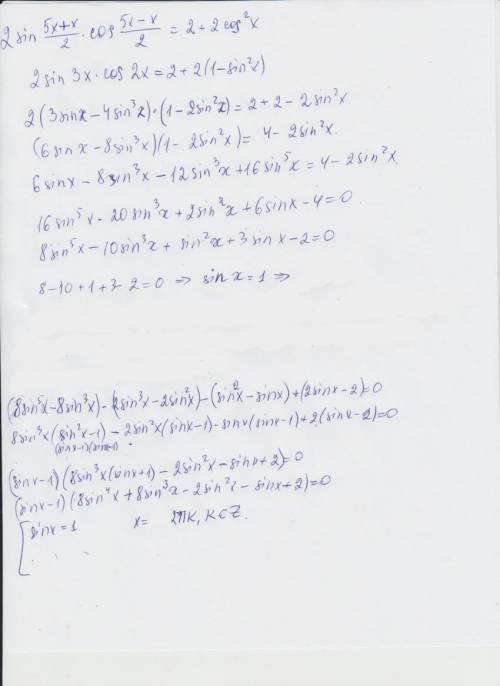 2 sin (5x+x)/2 · cos (5x-x)/2 = 2 + 2cos²x
2 sin 3x · cos 2x = 2 + 2(1-sin²x)
2(3sinx - 4sin³x)·(1-2sin²x) = 2+2-2sin²x
(6 sinx - 8sin³x)(1-2sin²x) = 4-2sin²x
6sinx - 8sin³x - 12sin³x + 16sin⁵x = 4-2sin²x
16sin⁵x - 20sin³x + 2sin²x + 6sinx - 4 = 0
8sin⁵x - 10sin³x + sin²x + 3sinx - 2 = 0
8-10+1+3-2=0 ⇒ sinx = 1 ⇒
(8sin⁵x - 8sin³x) - (2sin³x - 2sin²x) - (sin²x - sinx) + (2sinx - 2) = 0
8sin³x (sin²x-1) - 2sin²x(sinx-1) - sinx(sinx-1) + 2(sinx-2) = 0
(sinx-1)(sinx+1)
(sinx-1)(8sin³x(sinx+1) - 2sin²x - sinx + 2) = 0
(sinx-1)(8sin⁴x + 8sin³x - 2sin²x - sinx + 2) = 0
[ sinx = 1 x = 2πK, K∈Z.